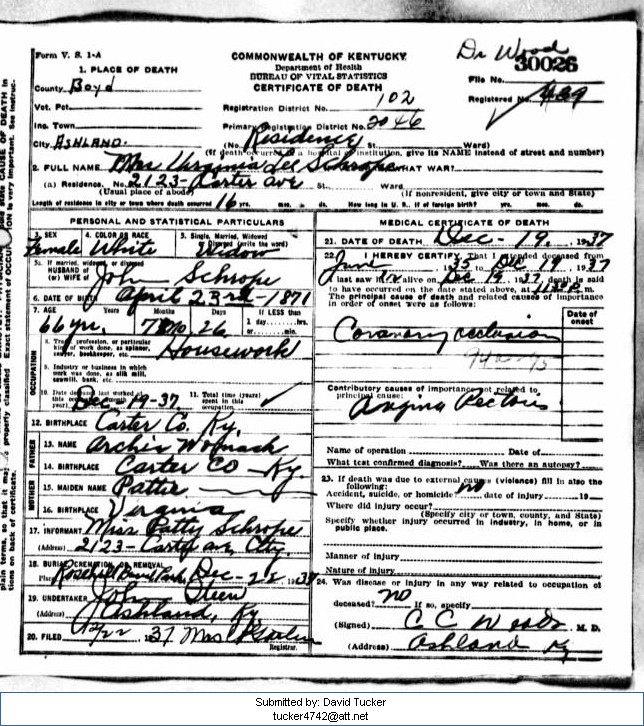 Form V. S. 1-A
COMMONWEALTH OF KENTUCKY
Department of Health
BUREAU OF VITAL STATISTICS
CERTIFICATE OF DEATH
Dr Wood
30026
File No.
Registered No.
1. PLACE OF DEATH
County Boyd
Vot. Pct.
Inc. Town
City ASHLAND.
Registration District No. 102
Primary Registration District No. 2046
(No. Residence St. Ward)
(If death occurred in a hospital or institution, give its NAME instead of street and number)
2. FULL NAME Mrs Virginia Schrope WHAT WAR?
(a) Residence. No. 2123- Carter ave St. Ward
(Usual place of abode) (If nonresident, give city or town and State)
Length of residence in city or town where death occurred 16 yrs. mos. ds. How long in U. S., if of foreign birth? yrs. mos. ds.
PERSONAL AND STATISTICAL PARTICULARS
3. SEX Female
4. COLOR OR RACE White
5. Single, Married, Widowed or Divorced (write the word) Widow
5a. If married, widowed, or divorced
HUSBAND of
(or) WIFE of John Schrope
6. DATE OF BIRTH April 23rd-1871
7. AGE Years Months Days If LESS than
66 yrs. 7 mo 26 1 day, hrs.
or min.
8. Trade, profession, or particular kind of work done, as spinner, sawyer, bookkeeper, etc. Housework
9. Industry or business in which work was done, as silk mill, sawmill, bank, etc.
10. Date deceased last worked at this occupation (month and year) Dec-19-37.
11. Total time (years) spent in this occupation
OCCUPATION
12. BIRTHPLACE Carter Co. Ky.
FATHER
13. NAME Archie Womack
14. BIRTHPLACE Carter CO - Ky.
MOTHER
15. MAIDEN NAME Pattie
16. BIRTHPLACE Virginia
17. INFORMANT Miss Patty Schrope
(Address) 2123- Carter av City
18. BURIAL, CREMATION OR REMOVAL
Place Rosehill Burial Park, Dec-22 1937
19. UNDERTAKER John Steen
(Address) Ashland, Ky.
20. FILED 12/22 1937 Mrs
Registrar.
MEDICAL CERTIFICATE OF DEATH
21. DATE OF DEATH Dec- 19, 1937
22. I HEREBY CERTIFY, That I attended deceased from
1935 to Dec 19 1937
I last saw her alive on Dec 19 1937, death is said
to have occurred on the date stated above, at
The principal cause of death and related causes of importance in order of onset were as follows:
Date of onset
Coronary occlusion
Contributory causes of importance not related to principal cause:
Angina Pectoris
Name of operation Date of
What test confirmed diagnosis? Was there an autopsy?
23. If death was due to external causes (violence) fill in also the following: no
Accident, suicide, or homicide date of injury 19
Where did injury occur?
(Specify city or town, county, and State)
Specify whether injury occurred in industry, in home, or in public place.
Manner of injury
Nature of injury
24. Was disease or injury in any way related to occupation of
deceased? no If so, specify
(Signed) C C Woods M. D.
(Address) Ashland Ky
Submitted by: David Tucker
tucker4742@att.net